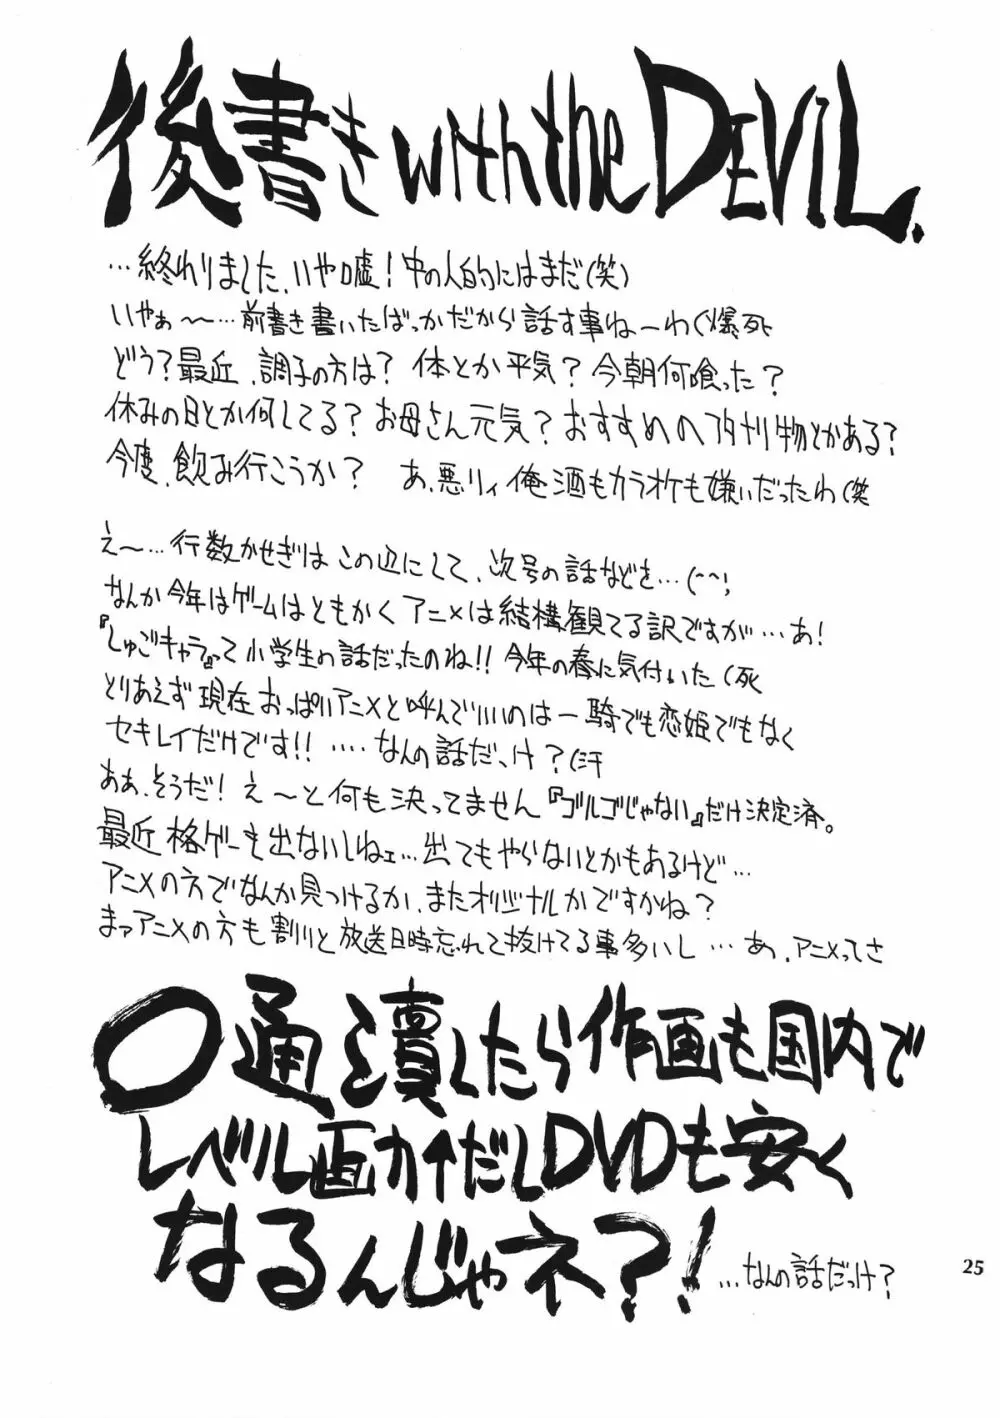 後書き with the DEVIL.
…終わりました、いや嘘!中の人的にはまだ(笑)
いやぁ〜…前書き書いたばっかだから話す事ねーわ(爆死
どう?最近、調子の方は? 体とか平気?今朝何喰った?
休みの日とか何してる?お母さん元気?おすすめのフタナリ物とかある?
今度、飲み行こうか? あ、悪リィ俺酒もカラオケも嫌いだったわ(笑
え〜…行数かせぎはこの辺にして、次号の話などを…(^^;
なんか今年はゲームはともかくアニメは結構観てる訳ですが…あ!
『しゅごキャラ』って小学生の話だったのね!!今年の春に気付いた(死
とりあえず現在おっぱいアニメと呼んでいいのは一騎でも恋姫でもなく
セキレイだけです!!‥‥なんの話だっけ?(汗
ああ、そうだ!え〜と何も決ってません『ゴルゴじゃない』だけ決定済。
最近格ゲーも出ないしねェ…出てもやらないとかもあるけど…
アニメの方でなんか見つけるか、またオリジナルかですかね?
まァアニメの方も割りと放送日時忘れて抜けてる事多いし…あ、アニメってさ
〇通潰したら作画も国内で
レベル画力↑だしDVDも安く
なるんじゃネ?!
…なんの話だっけ?
25